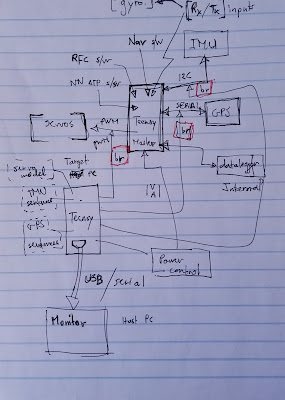 [gyro]
[Rx/Tx] inputs
Nav s/w
IMU
RFC s/w
I2C
br
SERIAL
GPS
Servos
PWM
Teensy
Master
br
PWM
br
datalogger
Internal
servo
model
Target
PC
IMU
sentences
GPS
sentences
Teensy
Power
control
USB / serial
Monitor
Host PC